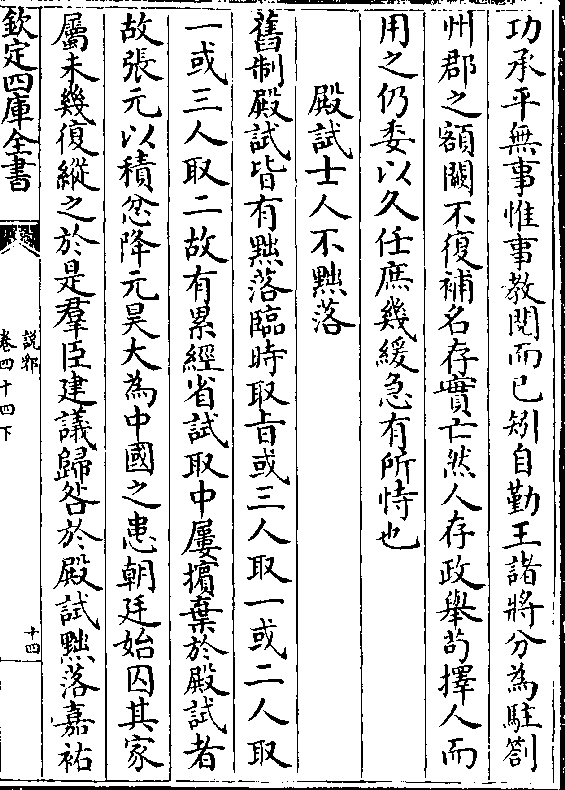 功承平無事惟事教閱而已矧自勤王諸將分為駐劄
州郡之額闕不復補名存實亡然人存政舉茍擇人而
用之仍委以久任庶幾緩急有所恃也
殿試士人不黜落
舊制殿試皆有黜落臨時取㫖或三人取一或二人取
一或三人取二故有累經省試取中屢擯棄於殿試者
故張元以積忿降元昊大為中國之患朝廷始囚其家
屬未幾復縱之於是羣臣建議歸咎於殿試黜落嘉祐
欽定四庫全書
說郛
卷四十四下
十四